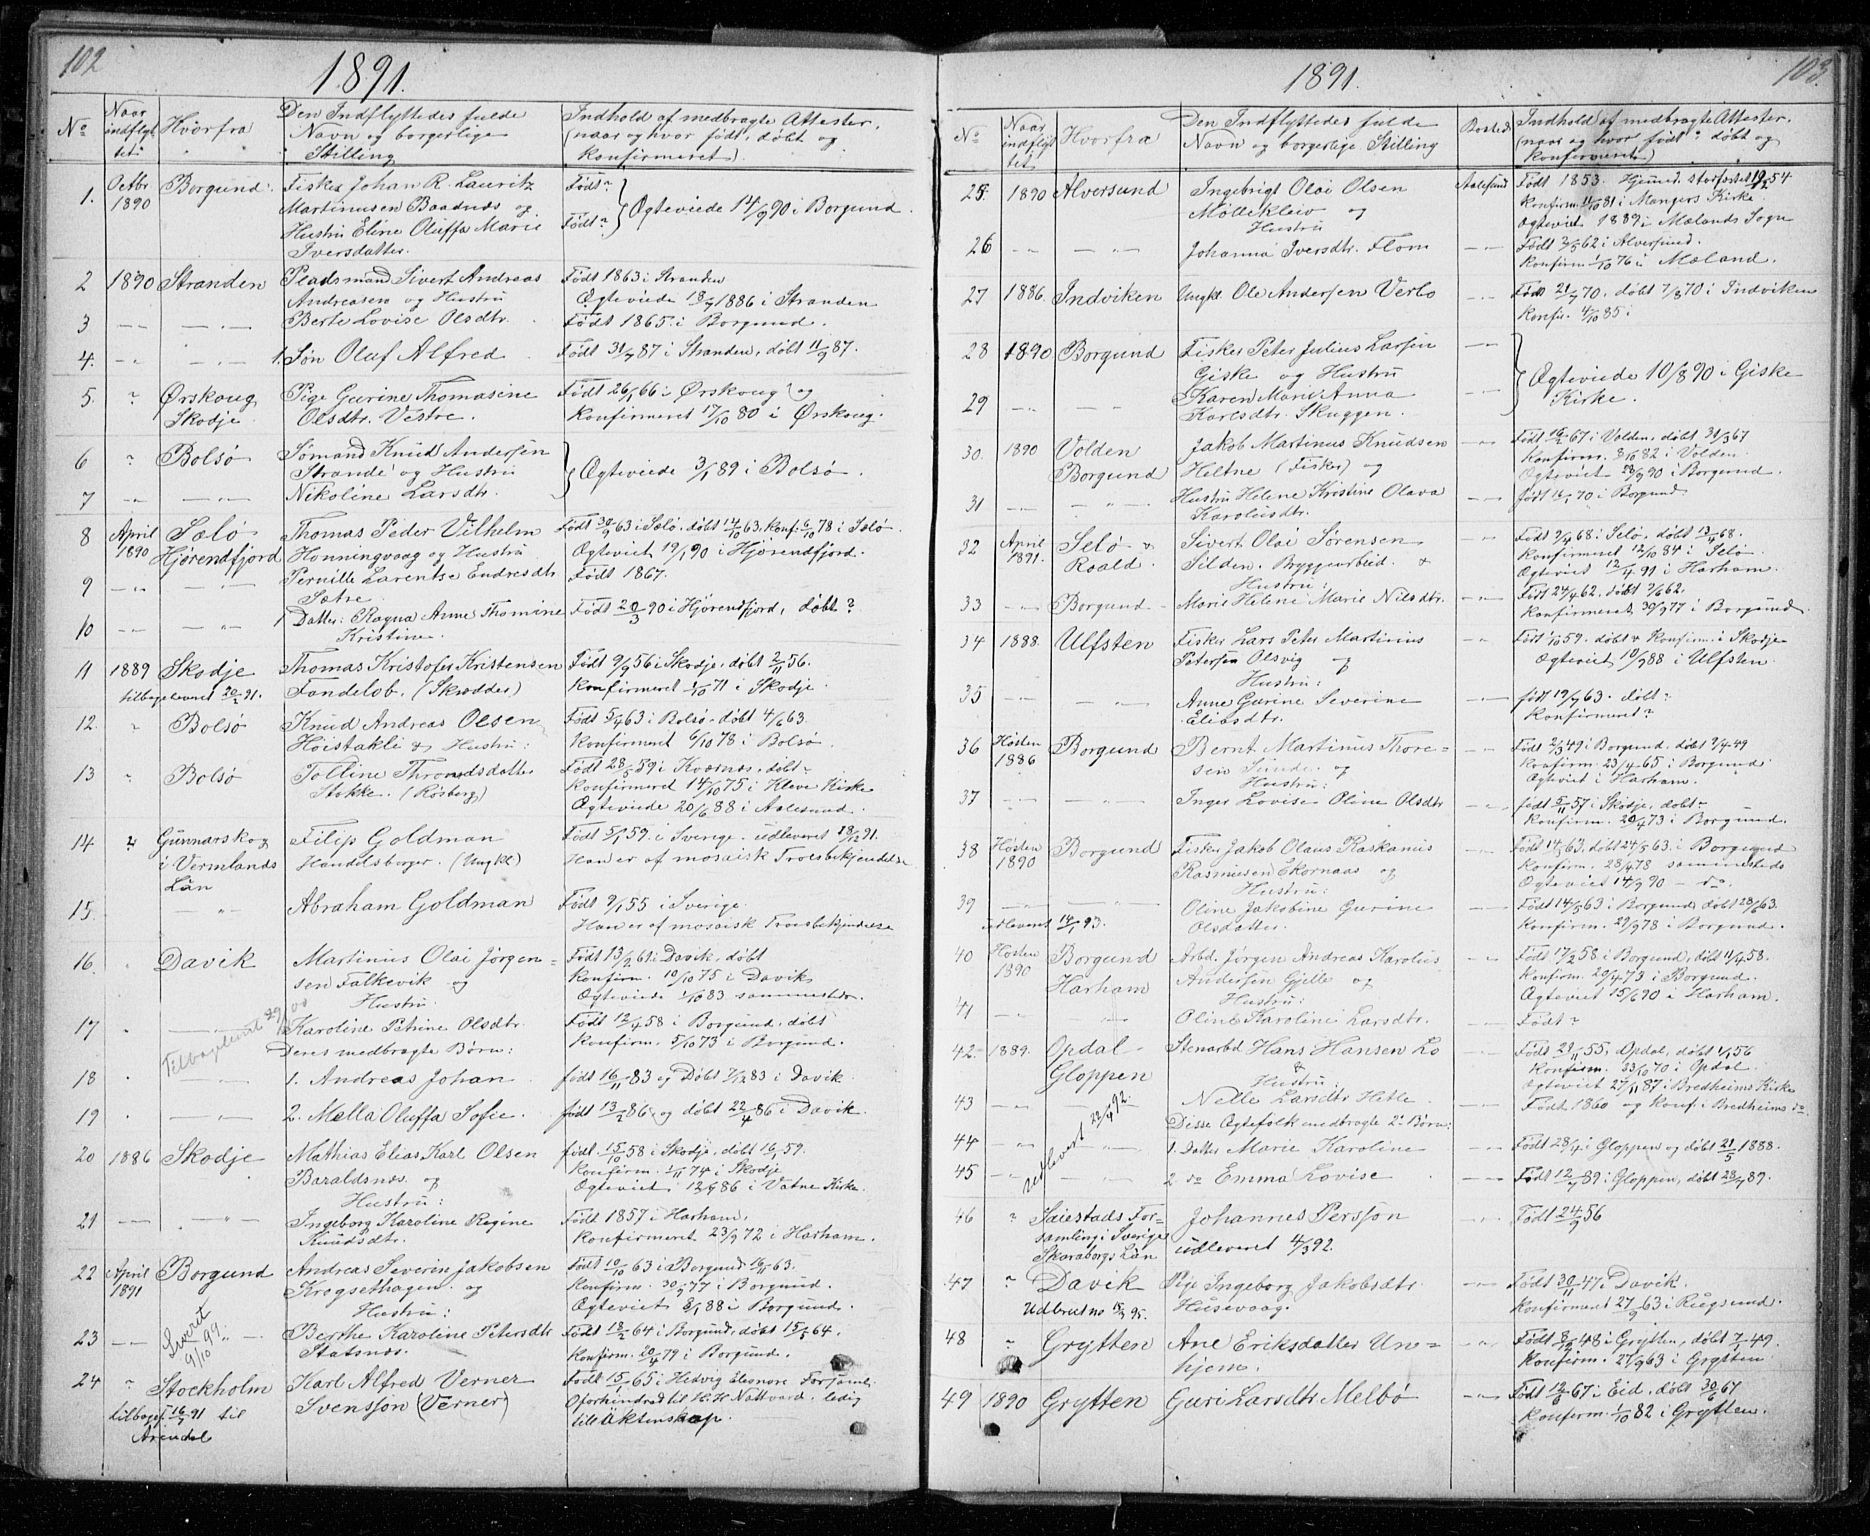 102
1891.
No
Naar indflyttet
Hvorfra
Den Indflyttedes fulde Navn og borgerlige Stilling
Indhold af medbragte Attester, (naar og hvor født, døbt og konfirmeret).
1. Octbr 1890 Borgund. Fisker Johan R. Lauritz Født?
Martinusen Baadnæs og Ægteviede 14/9 90 i Borgund.
Hustru Eline Oluffa Marie Født?
Iversdatter.
2 1890 Stranden Pladsmand Sivert Andreas Født 1863 i Stranden
Andreasen og Hustru Ægteviede 18/7 1886 i Stranden
3 Berte Lovise Olsdtr. Født 1865 i Borgund.
4. 1. Søn Oluf Alfred Født 31/7 87 i Stranden, døbt 11/9 87.
5. " Ørskoug Pige Gurine Thomasine Født 26/1 66 i Ørskoug og
Skodje. Olsdtr. Vestre. konfirmeret 17/10 80 i Ørskoug.
6 " Bolsø Sømand Knud Andersen
Strande og Hustru Ægteviede 3/1 89 i Bolsø
7 Nikoline Larsdtr.
8 April 1890 Sælø Thomas Peder Vilhelm Født 30/9 63 i Selø, døbt 14/10 63, konf. 6/10 78 i Selø.
Hjørendfjord Honningvaag og Hustru Ægteviet 19/1 90 i Hjørendfjord.
9 Pernille Larentse Endresdtr Født 1867.
Sætre.
10 1 Datter: Ragna Anne Thomine Født 20/3 90 i Hjørendfjord, døbt?
Kristine.
11 1889 Skodje Thomas Kristofer Kristensen Født 9/9 56 i Skodje, døbt 2/11 56.
tilbageleveret 20/2 91. Fandelob. (Skrædder) konfirmeret 1/10 71 i Skodje.
12. " Bolsø Knud Andreas Olsen Født 5/4 63 i Bolsø. døbt 4/6 63.
Høistakli & Hustru: konfirmeret 6/10 78 i Bolsø.
13 " Bolsø Tolline Thromdsdatter Født 28/5 59 i Kvernæs, døbt
Stokke. (Røsberg) konfirmeret 14/10 75 i Kleve Kirke
Ægteviede 20/6 88 i Aalesund.
14. " Gunnarskog Filip Goldman Født 5/1 59. i Sverige. udleveret 18/12 91.
i Vermlands Handelsborger. (Ungkl) Han er af mosaisk Troesbekjendelse
Län
15. Abraham Goldman Født 9/1 55 i Sverige
Han er af mosaisk Troesbekjendelse
16. Davik Martinus Olai Jørgen- Født 13/2 61 i Davik, døbt
sen Falkevik og konfirm. 10/10 75 i Davik
Hustru: Ægteviede 1/10 83 sammesteder.
17 Karoline Petrine Olsdtr. Født 12/4 58 i Borgund, døbt
Deres medbragte Børn: konfirm. 5/10 73 i Borgund.
18 1. Andreas Johan født 16/11 83 og Døbt 2/12 83 i Davik.
19 2. Mella Oluffa Sofie. født 13/2 86 og døbt 22/4 86 i Davik.
20 1886 Skodje Mathias Elias Karl Olsen født. 15/10 58 i Skodje, døbt 16/1 59.
Baraldsnæs og konfirm. 1/11 74 i Skodje
Hustru: Ægteviet 12/9 86 i Vatne Kirke.
21 Ingeborg Karoline Regine Født 1857 i Harham,
Knudsdtr. konfirmeret 23/9 72 i Harham.
22 April 1891 Borgund Andreas Severin Jakobsen Født 10/10 63 i Borgund 16/11 63.
Krogsethagen og konfirm. 30/9 77 i Borgund.
Hustru: Ægteviet 8/1 88 i Borgund.
23 Leverit 9/10 99. Berthe Karoline Petersdtr Født 18/2 64 i Borgund, døbt 15/5 64.
Statsnæs. konfirm. 20/4 79 i Borgund.
24 " Stockholm Karl Alfred Verner Født 15/1 65 i Hedvig Eleonore Forsaml.
tilbagef. 16/7 91 til Svensson (Verner) Oforhindrad til H.H. Nattvard, ledig
Arendal till Äktenskap.
103.
1891.
No
Naar indflyttet
Hvorfra
Den Indflyttedes fulde Navn og borgerlige Stilling
Bosted
Indhold af medbragte Attester, (naar og hvor født, døbt og konfirmeret)
25 1890 Alversund Ingebrigt Olai Olsen Aalesund Født 1853.
Møllekleiv og konfirm. 11/10 81 i Mangers Kirke.
Hustru Ægteviet 1889 i Mælands Sogn
26 Johanna Iversdtr. Flom Født 3/5 62 i Alversund.
konfirm 1/10 76 i Mæland.
27 1886. Indviken Ungkl. Ole Andersen Verlo Født 21/7 70, døbt 7/8 70 i Indviken
Konfir. 4/10 85.
28 1890 Borgund Fisker Peter Julius Larsen
Giske og Hustru Ægteviede 10/8 90 i Giske
29 Karen Marie Anna Kirke.
Karlsdtr. Skuggen.
30. 1890 Volden Jakob Martinus Knudsen Født 16/2 67 i Volden, døbt 31/3 67
Borgund Heltne (Fisker) og Konfirm. 8/10 82 i Volden
Ægteviet 28/9 90 i Borgund.
31 Hustru Helene Kristine Olava født 16/1 70 i Borgund
Karolusdtr.
32 April 1891. Selø & Sivert Olai Sørensen Født 9/4 68 i Selø, døbt 13/4 68.
Roald. Silden. Bryggearbeid. & konfirmeret 12/10 84 i Selø
Hustru: Ægteviet 12/4 91 i Harham.
33 Borgund Marie Helene Marie Nilsdtr. Født 24/4 62, døbt 9/6 62.
konfirmeret 30/9 77 i Borgund.
34 1888. Ulfsten Fisker Lars Peter Martinus Født 1/10 59. døbt & Konfirm. i Skodje
Petersen Olsvig og Ægteviet 10/9 88 i Ulfsten.
Hustru:
35 Anne Gurine Severine født 19/9 63. døbt?
Eliasdtr. konfirmeret?
36 Høsten 1886 Borgund Bernt Martinus Thore- Født 2/3 49 i Borgund, døbt 9/4 49
sen Sunde og konfirm. 23/4 65 i Borgund
Hustru: Ægteviet i Harham.
37 Inger Lovise Oline Olsdtr født 5/11 57 i Skodje, døbt?
konfirm. 20/4 73 i Borgund.
38 Høsten 1890 Borgund Fisker Jakob Olaus Raskanius Født 14/3 63. døbt 24/5 63. i Borgund
Rasmusen Ekornaas og Konfirm. 28/4 78 sammesteds
Hustru: Ægteviet 14/9 90 - do.
39 Oline Jakobine Gurine Født 14/5 63 i Borgund døbt 28/6 63.
udleveret 14/1 93. Olsdatter. Konfirm. 29/9 78 i Borgund.
40 Høsten 1890 Borgund Arbd. Jørgen Andreas Karolus Født 17/2 58 i Borgund, døbt 11/4 58.
Harham Andersen Gjelle og Konfirm. 20/4 73 i Borgund.
Hustru: Ægteviet 15/6 90 i Harham.
41 Oline Karoline Larsdtr. Født?
42. 1889. Opdal Stenarbd Hans Hansen Lo Født 29/11 55, Opdal, døbt 1/1 56
Gloppen & Konfirm. 23/10 70 i Opdal.
Hustru Ægteviet 27/11 87 i Bredheims Kirke
43 Nelle Larsdtr Hetle Født 1860 og konf. i Bredheims do
Disse Ægtefolk medbragte 2 Børn:
44 udleveret 23/4 92. 1. Datter Marie Karoline Født 28/4 i Gloppen og døbt 21/5 1888.
45 2 do Emma Lovise Født 12/7 89 i Gloppen, døbt 28/7 89.
46 " Saiestads For- Johannes Persson Født 24/9 56
samling i Sverige udleveret 4/3 92.
Skaraborgs Län
47 " Davik Pige Ingeborg Jakobsdtr. Født 30/11 47 i Davik.
Husevaag. Konfirmeret 27/9 63 i Rugsund.
48 " Grytten Ane Eriksdatter Un- Født 8/12 48 i Grytten, døbt 7/1 49.
hjem. Konfirm. 27/9 63 i Grytten
49 1890 Grytten Guri Larsdtr Melbø Født 12/6 67 i Eid, døbt 30/6 67
Konfirm. 1/10 82 i Grytten.